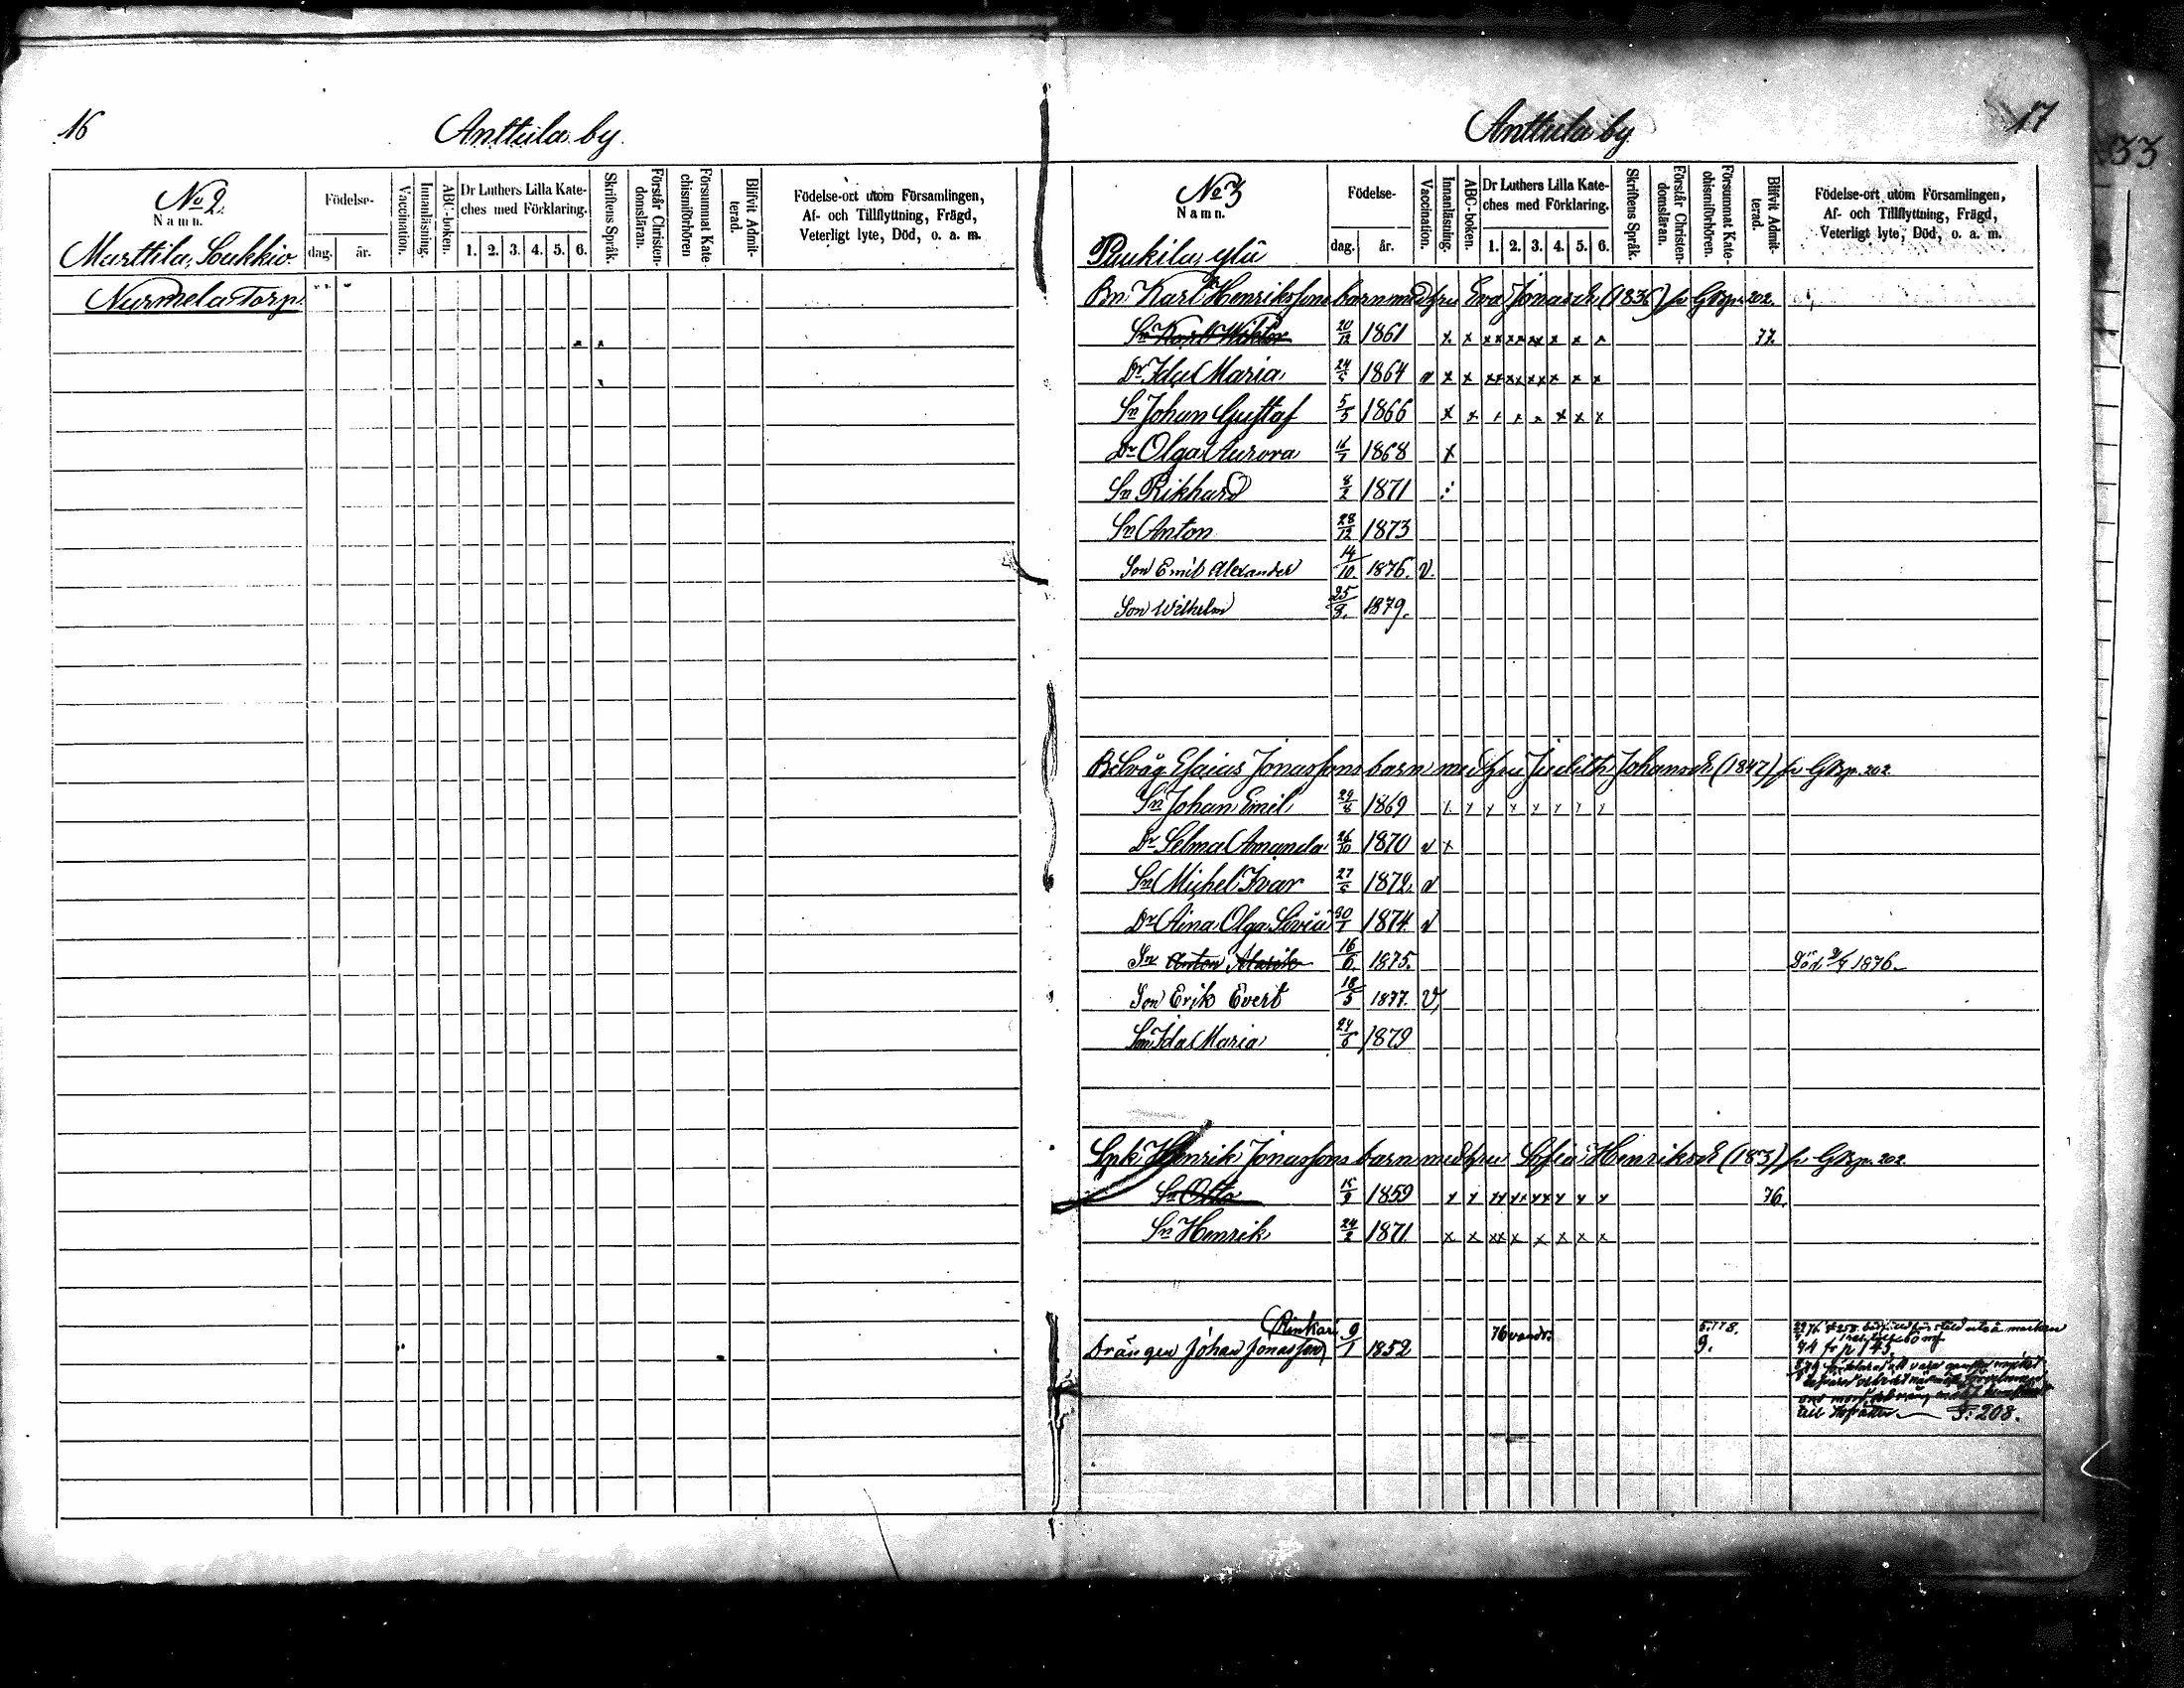 16
Anttila by.
No 2.
Namn.
Födelse-
dag.
år.
Vaccination.
Innanläsning.
ABC-boken.
Dr Luthers Lilla Kate-
ches med Förklaring.
1. 2. 3. 4. 5. 6.
Skriftens Språk.
Förstår Christen-
domsläran.
Försummat Kate
chismiförhören
Blifvit Admit-
terad.
Födelse-ort utom Församlingen,
Af- och Tillflyttning, Frägd,
Veterligt lyte, Död, o. a. m.
Marttila, Soukkio
Nurmela Torp.
17
Anttila by
No 3
Namn.
Födelse-
dag.
år.
Vaccination.
Innanläsning.
ABC-boken.
Dr Luthers Lilla Kate-
ches med Förklaring.
1. 2. 3. 4. 5. 6.
Skriftens Språk.
Förstår Christen-
domsläran.
Försummat Kate-
chismiförhören.
Blifvit Admit-
terad.
Födelse-ort utom Församlingen,
Af- och Tillflyttning, Frägd,
Veterligt lyte, Död, o. a. m.
33
Puukila, Ylä
Bn. Karl Henrikssons barn med hu Eva Jonasdr (1836) fr GBp. 202.
Sn Karl Wiktor 20/12 1861 x x xx xx xx x x x 77.
Dr Ida Maria 1864 v x x xx xx xx x x x
Sn Johan Gustaf 5/5 1866 x x x x x x x x
Dr Olga Aurora 1868 x
Sn Rikhard 8/2 1871
Sn Anton 28/12 1873
Son Emil Alexander 14/10. 1876. V.
Son Wilhelm 1879.
Esaias Jonassons barn med hu Judith Johansdr (1847) fr GBp. 202.
Sn Johan Emil 1869 x x x x x x x x
Dr Selma Amanda 26/10 1870 v x
Sn Michel Ivar 1872. v
Dr Aina Olga Sivia 1874. v
Sn Anton Alarik 16/6. 1875. Död 1876.
Son Erik Evert 18/5 1877. V,
Ida Maria 24/6 1879
Spk. Henrik Jonassons barn med hu Sofia Henriksdr fr GBp. 202.
Sn Otto 15/9 1859 x x xx xx xx x x x 76.
Sn Henrik 24/2 1871 x x xx x x x x x
Rinkari
Drängen Johan Jonasson 9/1 1852 76 9.
S: 208.